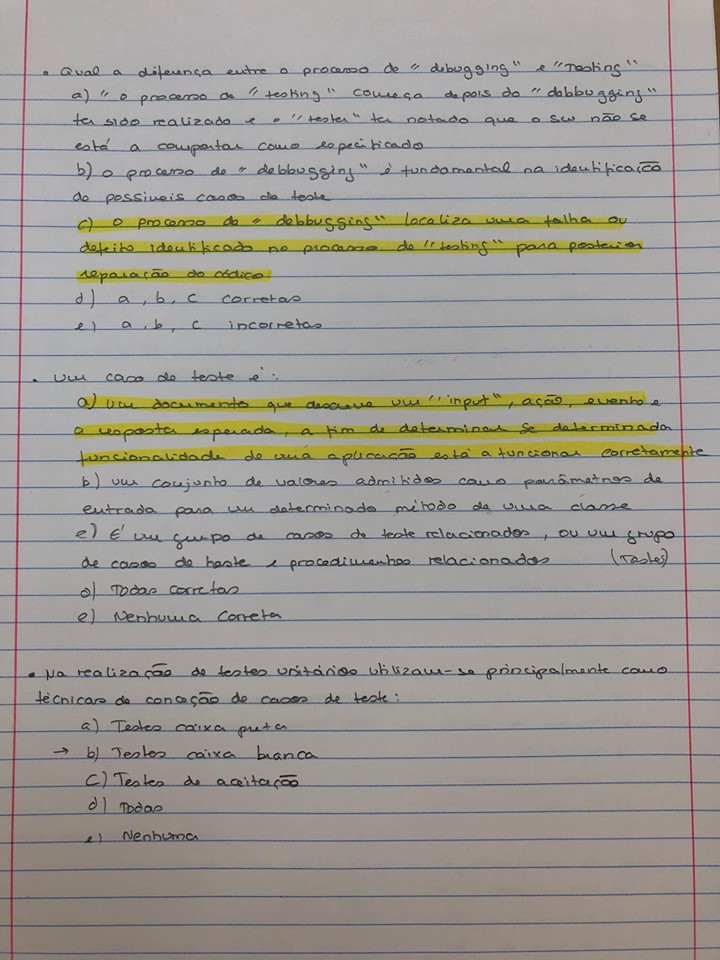 • Qual a diferença entre o processo de "debugging" e "Testing"
a) " o processo de "testing" começa depois do "debbugging"
ter sido realizado e o "tester" ter notado que o sw não se
está a comportar como especificado
b) o processo de "debbugging" é fundamental na identificação
de possiveis casos de teste
c) o processo de "debbugging" localiza uma falha ou
defeito identificado no processo de "testing" para posterior
reparação do código
d) a, b, c corretas
e) a, b, c incorretas
• Um caso de teste é:
a) Um documento que descreve um "input", ação, evento e
a resposta esperada, a fim de determinar se determinada
funcionalidade de uma aplicação está a funcionar corretamente
b) um conjunto de valores admitidos como parâmetros de
entrada para um determinado método de uma classe
c) É um grupo de casos de teste relacionados, ou um grupo
de casos de teste e procedimentos relacionados (Testes)
d) Todas corretas
e) Nenhuma correta
• Na realização de testes unitários utilizam-se principalmente como
técnicas de conceção de casos de teste:
a) Testes caixa preta
→ b) Testes caixa branca
c) Testes de aceitação
d) Todas
e) Nenhuma